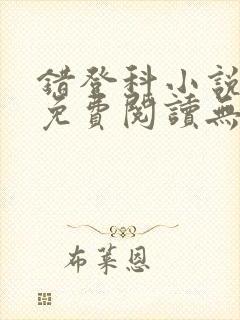 錯登科小說
免費閱讀無
布萊恩